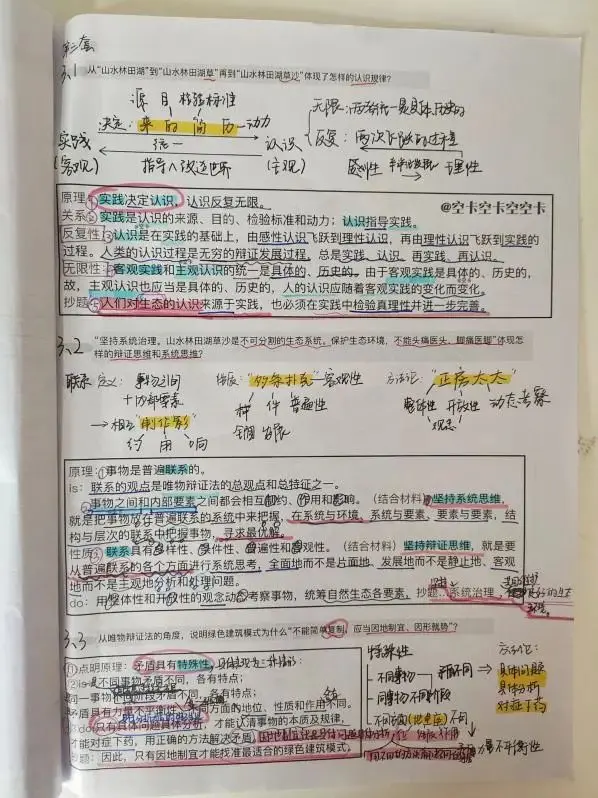 第二套
3.1 从“山水林田湖”到“山水林田湖草”再到“山水林田湖草沙”体现了怎样的认识规律?
源 目 检验标准
决定: 来 的 简 历 动力
无限:
实践 统一 认识
反复: 两次飞跃的过程
(客观) 指导人改造世界 (主观)
感性 理性
原理:①实践决定认识,认识反复无限。
@空卡空卡空空卡
关系②实践是认识的来源、目的、检验标准和动力;认识指导实践。
反复性③认识是在实践的基础上,由感性认识飞跃到理性认识,再由理性认识飞跃到实践的
过程。人类的认识过程是无穷的辩证发展过程,总是实践、认识、再实践、再认识。
无限性④客观实践和主观认识的统一是具体的、历史的。由于客观实践是具体的、历史的,
故,主观认识也应当是具体的、历史的,人的认识应随着客观实践的变化而变化。
抄题⑤人们对生态的认识来源于实践,也必须在实践中检验真理性并进一步完善。
3.2 “坚持系统治理。山水林田湖草沙是不可分割的生态系统。保护生态环境,不能头痛医头、脚痛医脚”体现怎
样的辩证思维和系统思维?
联系 定义: 事物之间 性质: “多条扑克” 客观性 方法论: “正房太太”
+内部要素 样 件 普遍性 整体性 开放性 动态考察
→相互“制作影” 观念
约 用 响 全面 发展
原理:①事物是普遍联系的。
is:联系的观点是唯物辩证法的总观点和总特征之一。
②事物之间和内部要素之间都会相互制约、作用和影响。(结合材料)坚持系统思维,
就是把事物放在普遍联系的系统中来把握,在系统与环境、系统与要素、要素与要素,结
构与层次的联系中把握事物,寻求最优解。
性质③联系具有多样性、条件性、普遍性和客观性。(结合材料)坚持辩证思维,就是要
从普遍联系的各个方面进行系统思考,全面地而不是片面地、发展地而不是静止地、客观
地而不是主观地分析和处理问题。
do:用整体性和开放性的观念动态考察事物,统筹自然生态各要素,抄题:系统治理,
3.3 从唯物辩证法的角度,说明绿色建筑模式为什么“不能简单复制,应当因地制宜、因形就势”?
特殊性 方法论:
①点明原理:矛盾具有特殊性,
②is:不同事物矛盾不同,各有特点;
不同事物 矛盾不同 具体问题
同一事物不同阶段矛盾不同,各有特点;
同事物不同阶段 具体分析
矛盾具有力量不平衡性、方面的地位、性质和作用不同。
对症下药
③do:只有具体问题具体分析,才能认清事物的本质及规律,
才能对症下药,用正确的方法解决矛盾,
力量不平衡性
抄题:因此,只有因地制宜才能找准最适合的绿色建筑模式。